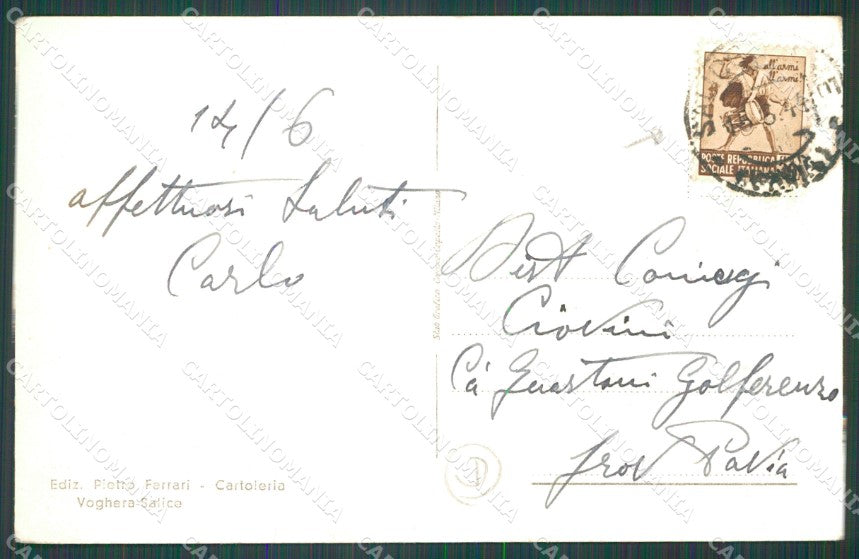 14/6
affettuosi Saluti
Carlo
Ediz. Pietro Ferrari - Cartoleria
Voghera-Salice
all'armi
all'armi!
POSTE REPUBBLICA
SOCIALE ITALIANA
Coniugi
Ca' Guastoni Golferenzo
Prov Pavia
CARTOLINOMANIA